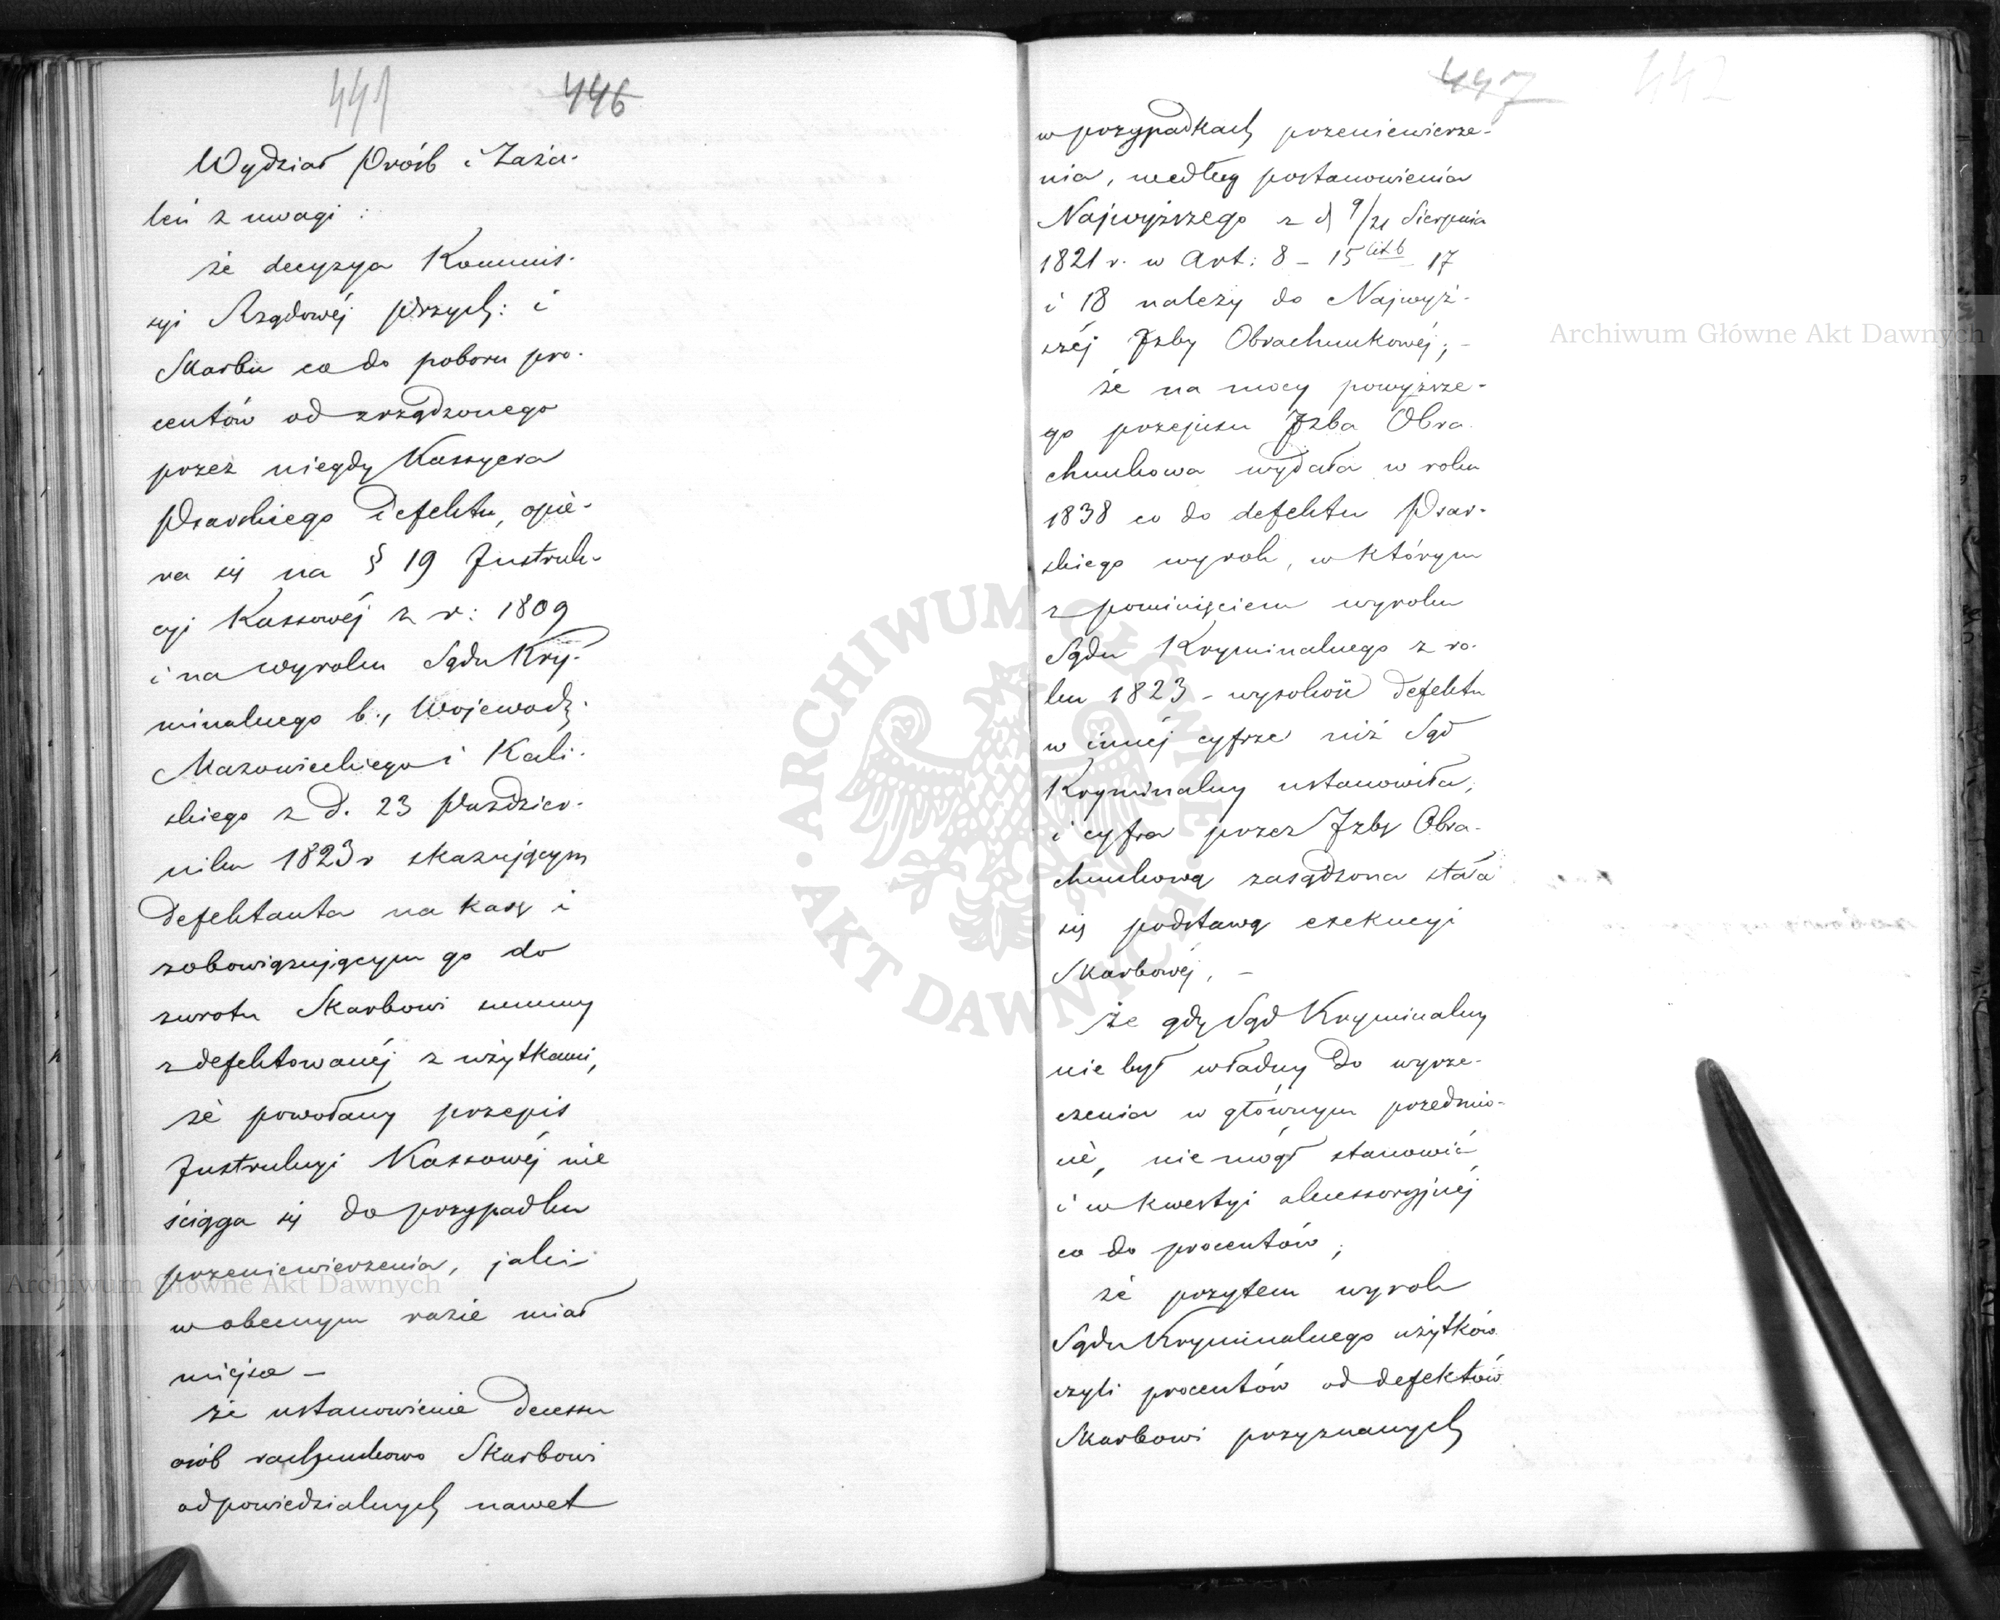 441 446
Wydział Próśb i Zaża-
leń z uwagi:
że decyzya Kommis-
syi Rządowéj Przych: i
Skarbu co do poboru pro-
centów od zrządzonego
przez niegdy Kassyera
Psarskiego defektu, opie-
ra się na § 19 Instruk-
cyi Kassowéj z r: 1809
i na wyroku Sądu Kry-
minalnego b., Wojewodz.
Mazowieckiego i Kali-
skiego z d. 23 Paździer-
nika 1823 r skazującym
defektanta na karę i
zobowiązującym go do
zwrotu Skarbowi summy
zdefektowanéj z użytkami,
że powołany przepis
Instrukcyi Kassowéj nie
ściąga się do przypadku
przeniewierzenia, jaki
w obecnym razie miał
miejsce —
że ustanowienie decessu
osób rachunkowo Skarbowi
odpowiedzialnych nawet
447 442
w przypadkach przeniewierze-
nia, według postanowienia
Najwyższego z d 9/21 Sierpnia
1821 r. w Art: 8 – 15 lit b 17
i 18 należy do Najwyż-
széj Izby Obrachunkowéj; –
że na mocy powyższe-
go przepisu Izba Obra
chunkowa wydała w roku
1838 co do defektu Psar-
skiego wyrok, w którym
z pominięciem wyroku
Sądu Kryminalnego z ro-
ku 1823 – wysokość defektu
w innéj cyfrze niż Sąd
Kryminalny ustanowiła,
i cyfra przez Izbę Obra-
chunkową zasądzona stała
się podstawą exekucyi
Skarbowéj, –
że gdy Sąd Kryminalny
nie był władny do wyrze-
czenia w głównym przedmio-
cie, nie mógł stanowić
i w kwestyi akcessoryjnéj
co do procentów;
że przytem wyrok
Sądu Kryminalnego użytków
czyli procentów od defektów
Skarbowi przyznanych
Archiwum Główne Akt Dawnych
Archiwum Główne Akt Dawnych
ARCHIWUM GŁÓWNE AKT DAWNYCH